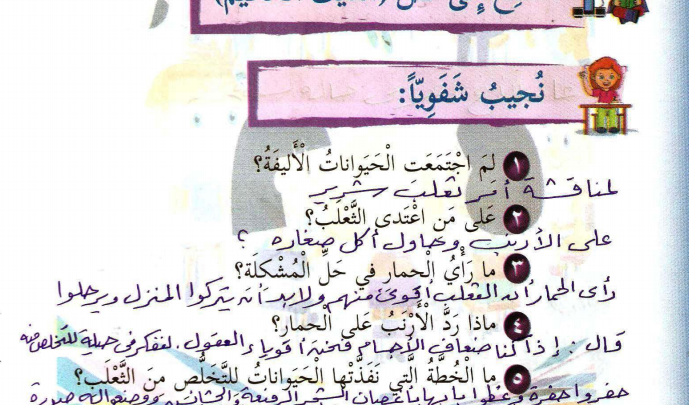 نُجيبُ شَفَوِيّاً:
١ لمَ اجْتَمَعَت الْحَيَواناتُ الْأَليفَةُ؟
لمناقشة أمر ثعلب شرير
٢ عَلى مَن اعْتَدى الثَّعْلَبُ؟
على الأرنب وحاول أكل صغاره ؟
٣ ما رَأْيُ الْحمار في حَلِّ الْمُشْكلَة؟
رأى الحمار أن الثعلب أقوى منهم ولابد أن يتركوا المنزل ويرحلوا
٤ ماذا رَدَّ الْأَرْنَبُ عَلى الْحمارِ؟
قال : إذا كنا ضعاف الأجسام فنحن أقوياء العقول . لنفكر في حيلة للتخلص منه
٥ ما الْخُطَّةُ الَّتي نَفَذَّتْها الْحَيَواناتُ للتَّخَلُّص منَ الثَّعْلَب؟
حفروا حفرة وغطوا بابها بأغصان الشجر الرفيعة والحشائش ووضعوا صورة